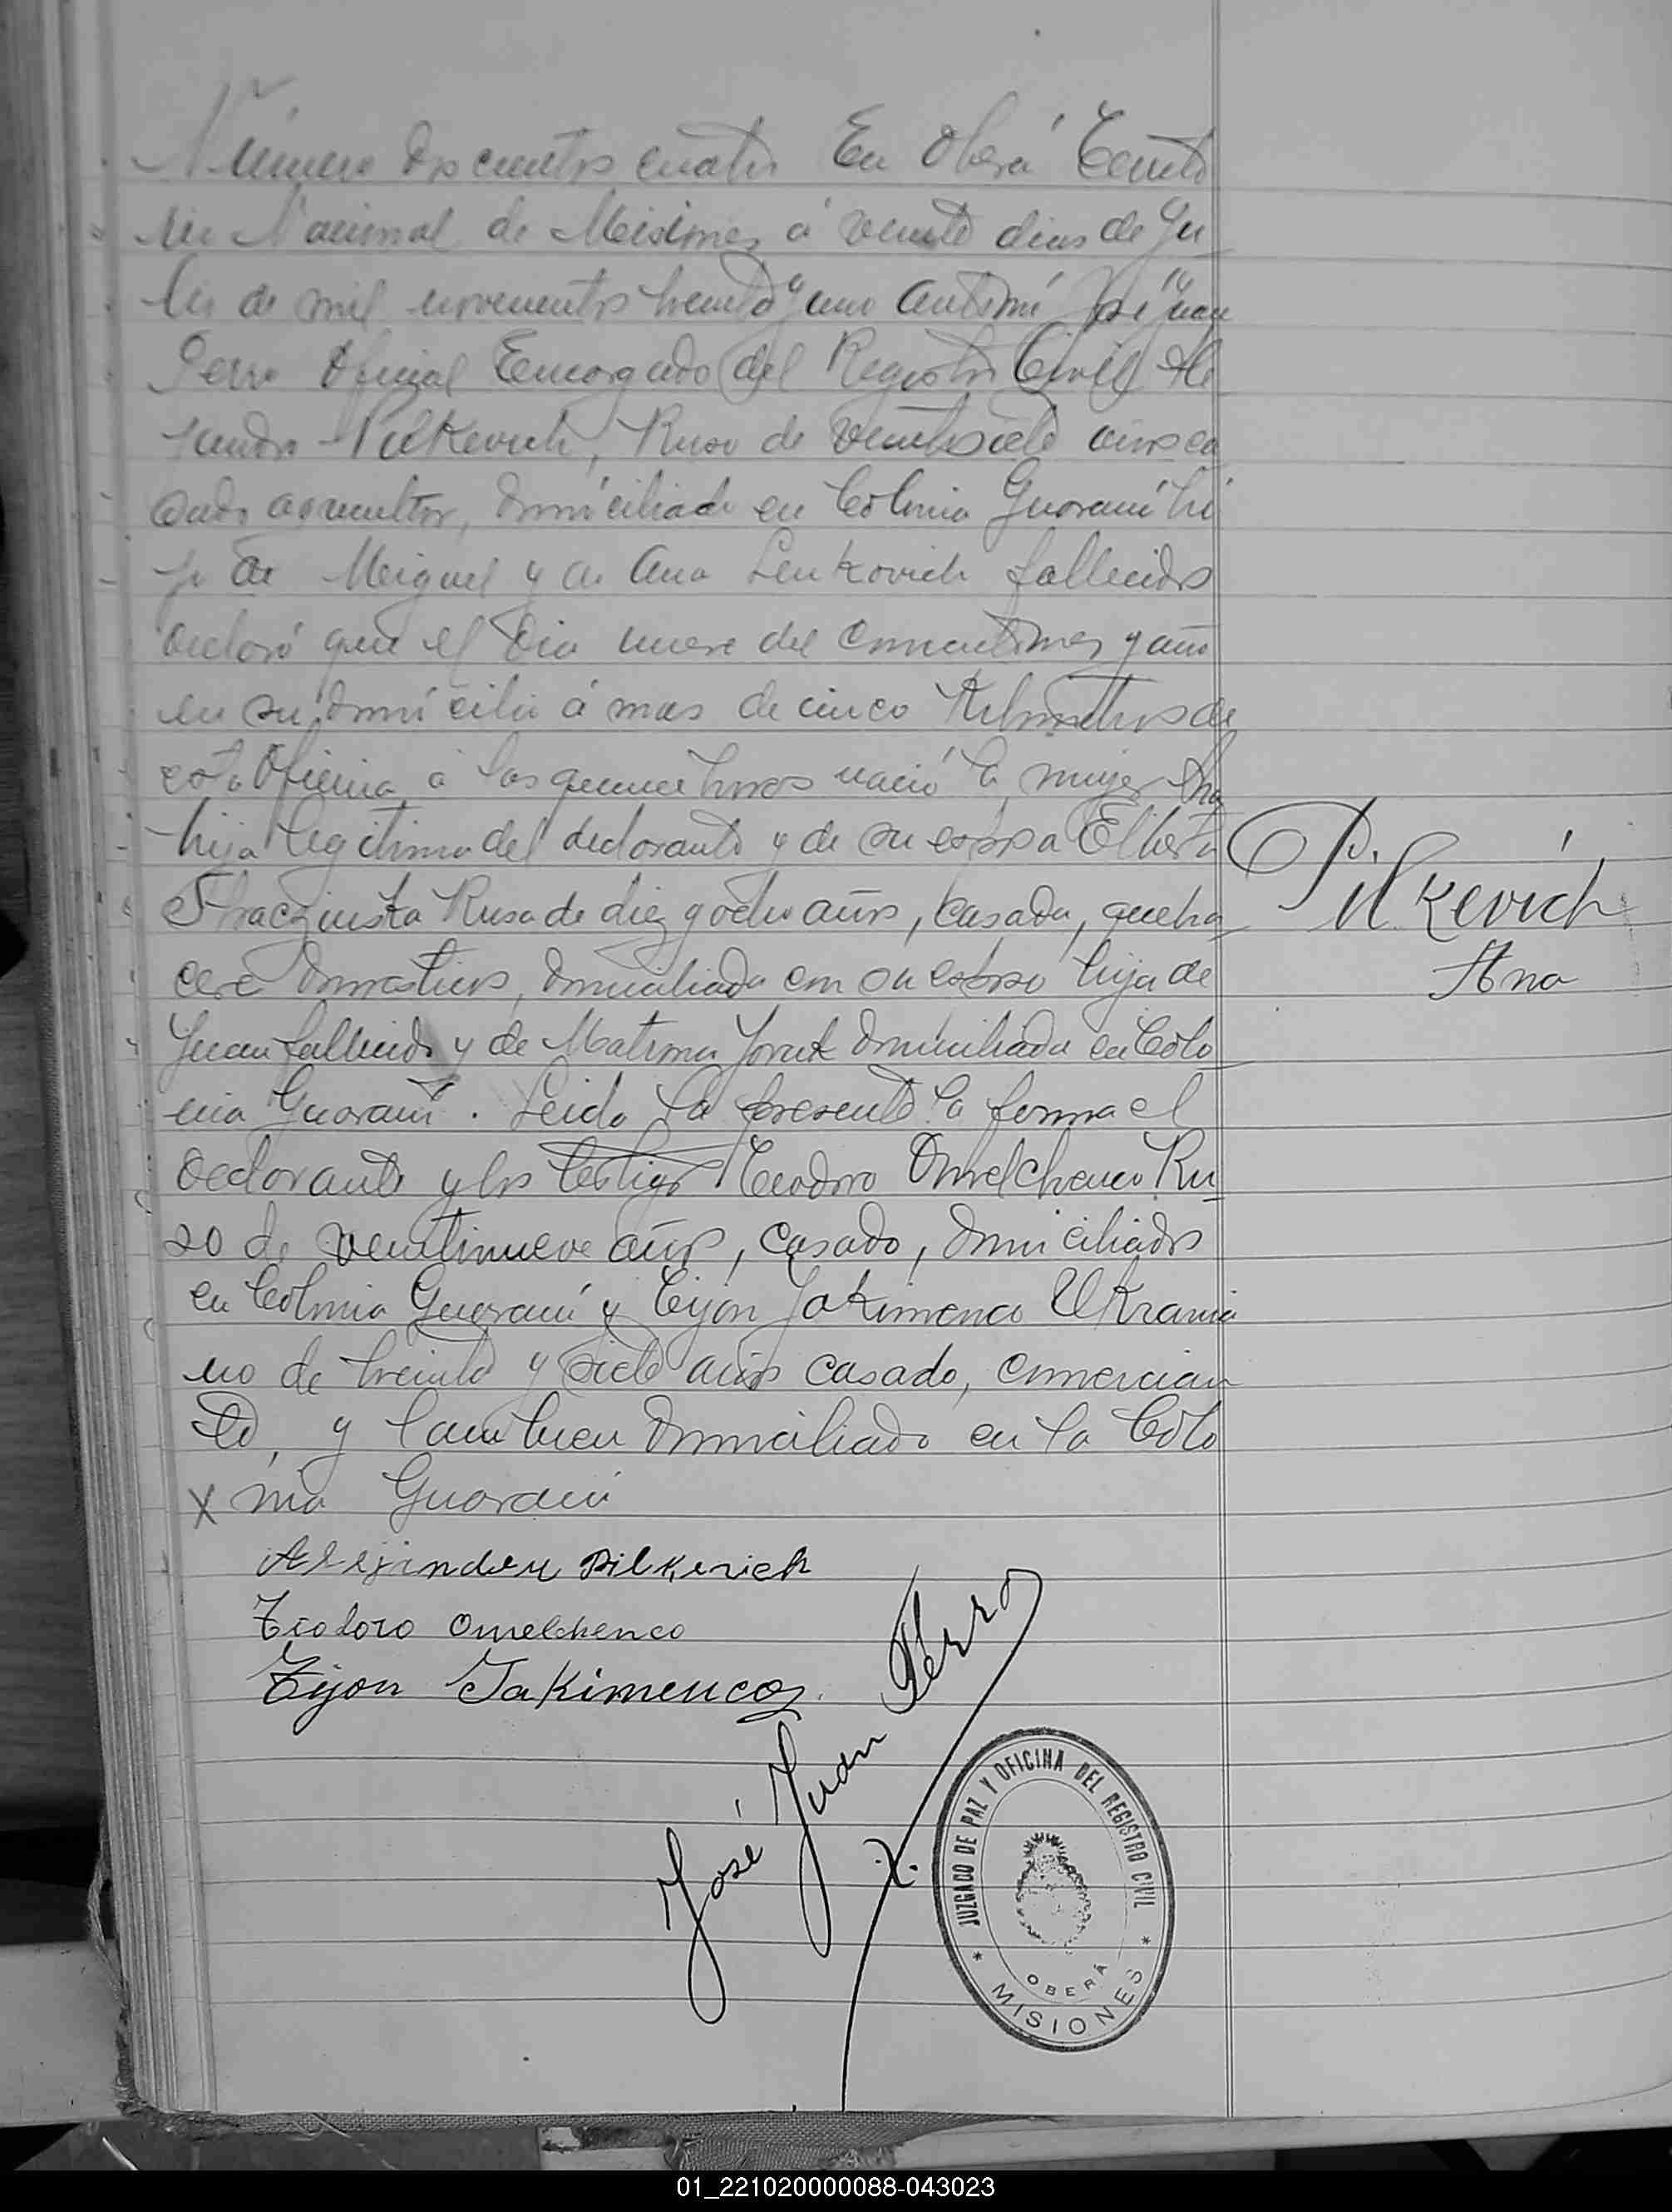 Número doscientos cuatro En Oberá Territo
rio Nacional de Misiones á veinte dias de Ju
lio de mil novecientos treinta y uno ante mi José Juan
Perro Oficial Encargado del Registro Civil Ale
jandro Pilkevich, Ruso de veintisiete años ca
sado agricultor, domiciliado en Colonia Guaraní hi
jo de Miguel y de Ana Leukovich fallecidos
declaró que el dia nueve del corriente mes y año
en su domicilio á mas de cinco Kilometros de
esta Oficina á las quince horas nació la mujer Ana
hija legitima del declarante y de su esposa
Rusa de diez y ocho años, casada, queha
cere domesticos, domiciliada con su esposo hija de
Juan fallecido y de Matrona domiciliada en Colo
nia Guaraní. Leida la presente la forma el
declarante y los testigos Teodoro Omelchenco Ru
so de veintinueve años, casado, domiciliados
en Colonia Guaraní y Tijon Jakimenco Ukrania
no de treinta y siete años casado, comercian
te, y tambien domiciliado en la Colo
x nia Guaraní
Pilkevich
Ana
Alejandru Pilkevich
Teodoro Omelchenco
Tijon Jakimenco
José Juan Perro
JUZGADO DE PAZ Y OFICINA DEL REGISTRO CIVIL
OBERÁ
* MISIONES *
01_221020000088-043023